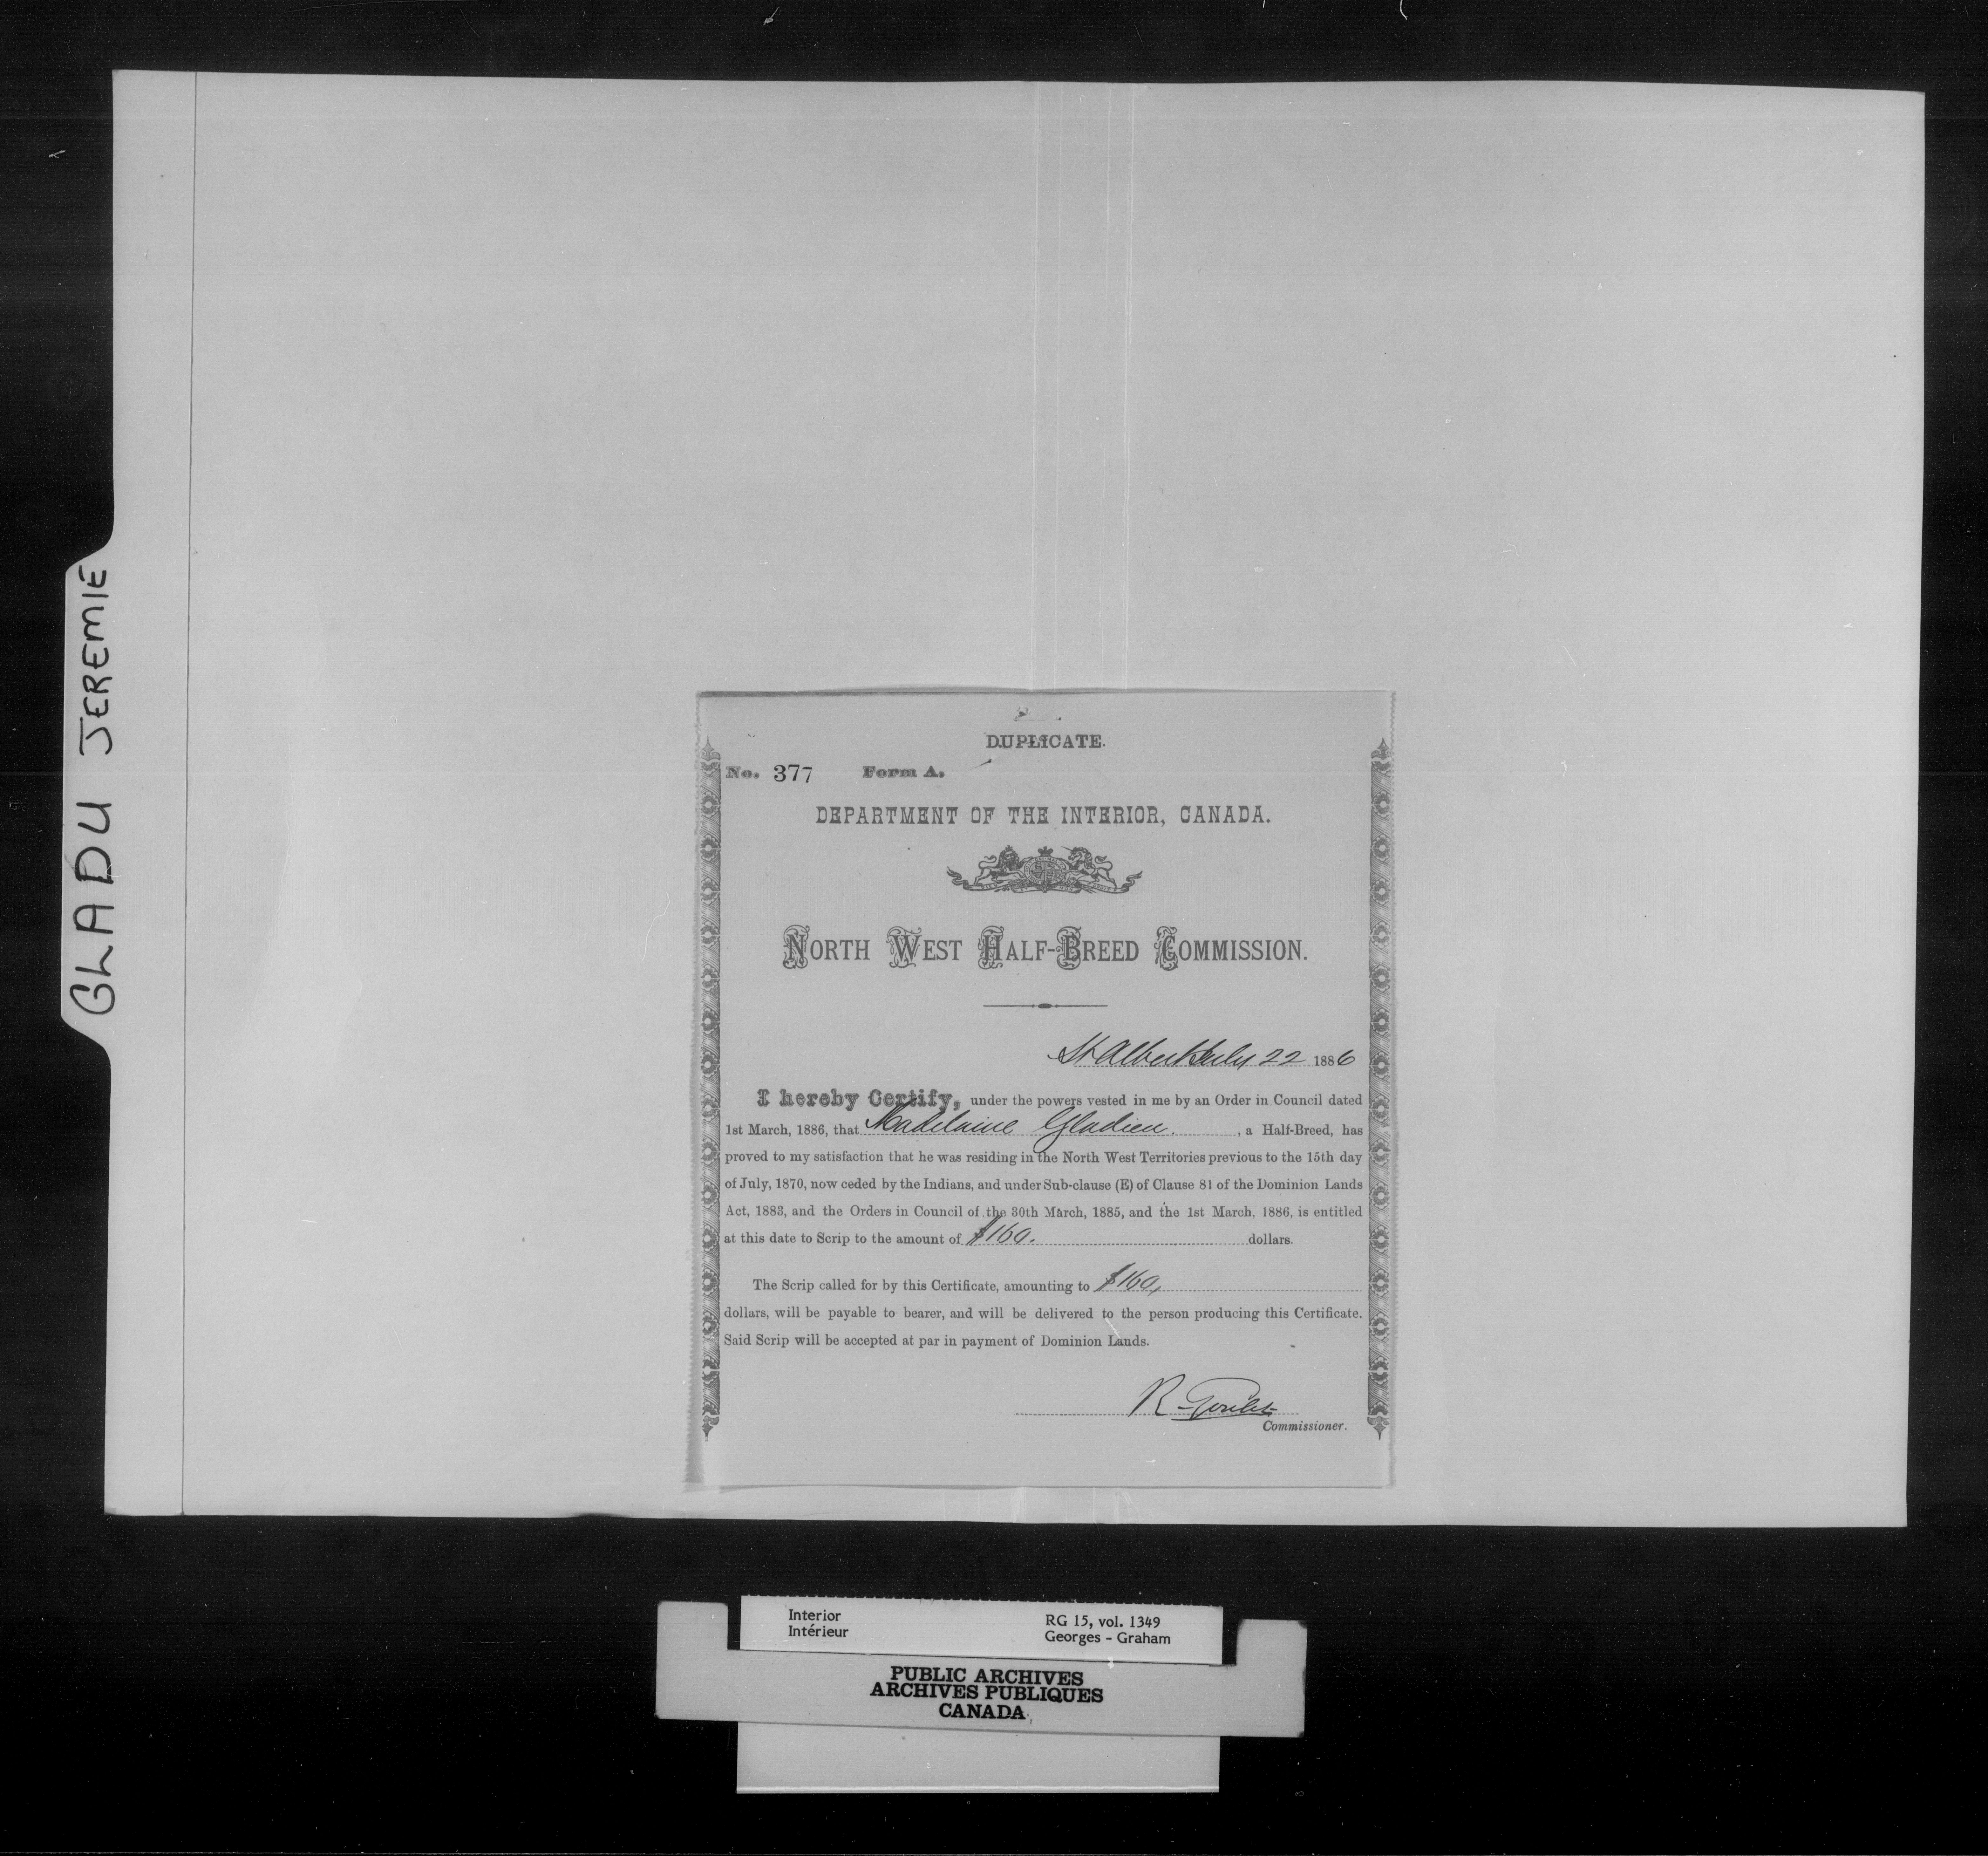 GLADU JEREMIE
DUPLICATE.
No. 377 Form A.
DEPARTMENT OF THE INTERIOR, CANADA.
NORTH WEST HALF-BREED COMMISSION.
St Albert July 22 1886
I hereby Certify, under the powers vested in me by an Order in Council dated
1st March, 1886, that Madelaine Gladieu, a Half-Breed, has
proved to my satisfaction that he was residing in the North West Territories previous to the 15th day
of July, 1870, now ceded by the Indians, and under Sub-clause (E) of Clause 81 of the Dominion Lands
Act, 1883, and the Orders in Council of the 30th March, 1885, and the 1st March, 1886, is entitled
at this date to Scrip to the amount of $160. dollars.
The Scrip called for by this Certificate, amounting to $160,
dollars, will be payable to bearer, and will be delivered to the person producing this Certificate.
Said Scrip will be accepted at par in payment of Dominion Lands.
R Goulet
Commissioner.
Interior RG 15, vol. 1349
Intérieur Georges - Graham
PUBLIC ARCHIVES
ARCHIVES PUBLIQUES
CANADA